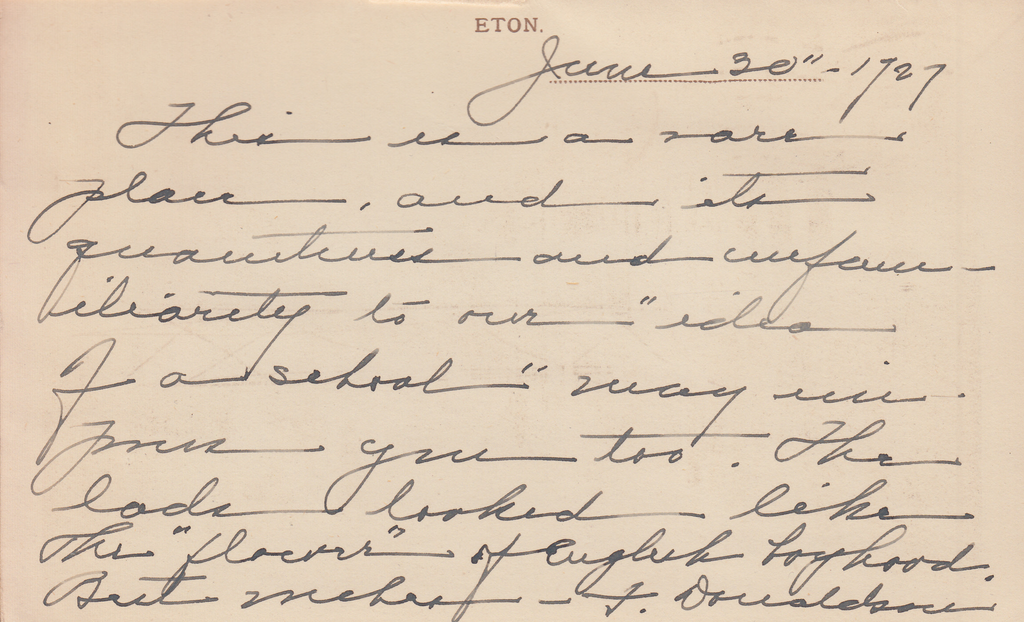 ETON.
June 30" - 1927
This is a rare
place, and its
quaintness and unfam-
iliarity to our "idea
of a school" may im-
press you too. The
lads looked like
the "flower" of English boyhood.
Best wishes - F. Donaldson